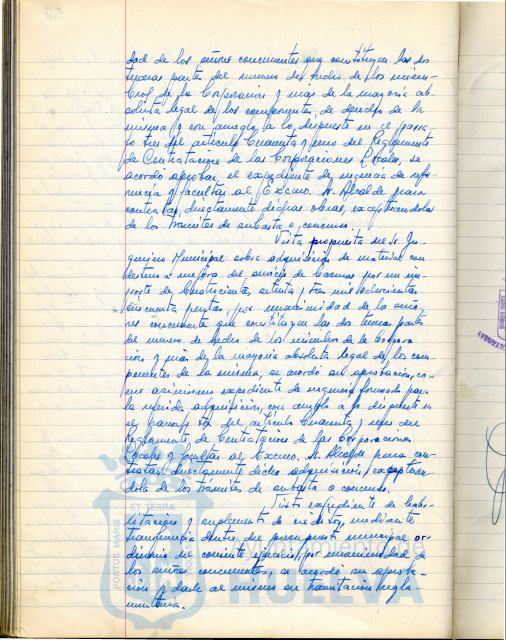 dad de los señores concurrentes que constituyen las dos
terceras partes del numero de hecho de los miem-
bros de la Corporación y más de la mayoria ab-
soluta legal de los componentes de derecho de la
misma y con arreglo a lo dispuesto en el parra-
fo tres del artículo Cuarenta y uno del Reglamento
de Contratación de las Corporaciones Locales, se
acordó aprobar el expediente de urgencia de refe-
rencia y facultar al Excmo. Sr. Alcalde para
contratar directamente dichas obras, exceptuandolas
de los trámites de subasta o concurso.
Vista propuesta del Sr. In-
geniero Municipal sobre adquisición de material con
destino a mejora del servicio de por un im-
porte de Cuatrocientas setenta y tres mil ochocientas
cincuenta pesetas, por unanimidad de los seño-
res concurrentes que constituyen las dos terceras partes
del numero de hecho de los miembros de la Corpora-
ción y más de la mayoria absoluta legal de los com-
ponentes de la misma, se acordó su aprobación, co-
mo asimismo expediente de urgencia formado para
la referida adquisición, con arreglo a lo dispuesto en
el parrafo tres del artículo Cuarenta y uno del
Reglamento de Contratación de las Corporaciones
Locales y facultar al Excmo. Sr. Alcalde para con-
tratar directamente dicha adquisición, exceptuan-
dola de los trámites de subasta o concurso.
Visto expediente de habi-
litación y suplemento de crédito, mediante
transferencia dentro del presupuesto municipal or-
dinario del corriente ejercicio, por unanimidad de
los señores concurrentes, se acordó su aproba-
ción y darle al mismo su tramitación regla-
mentaria.
ET TERRAE
PORTUS MARIS
HUELVA